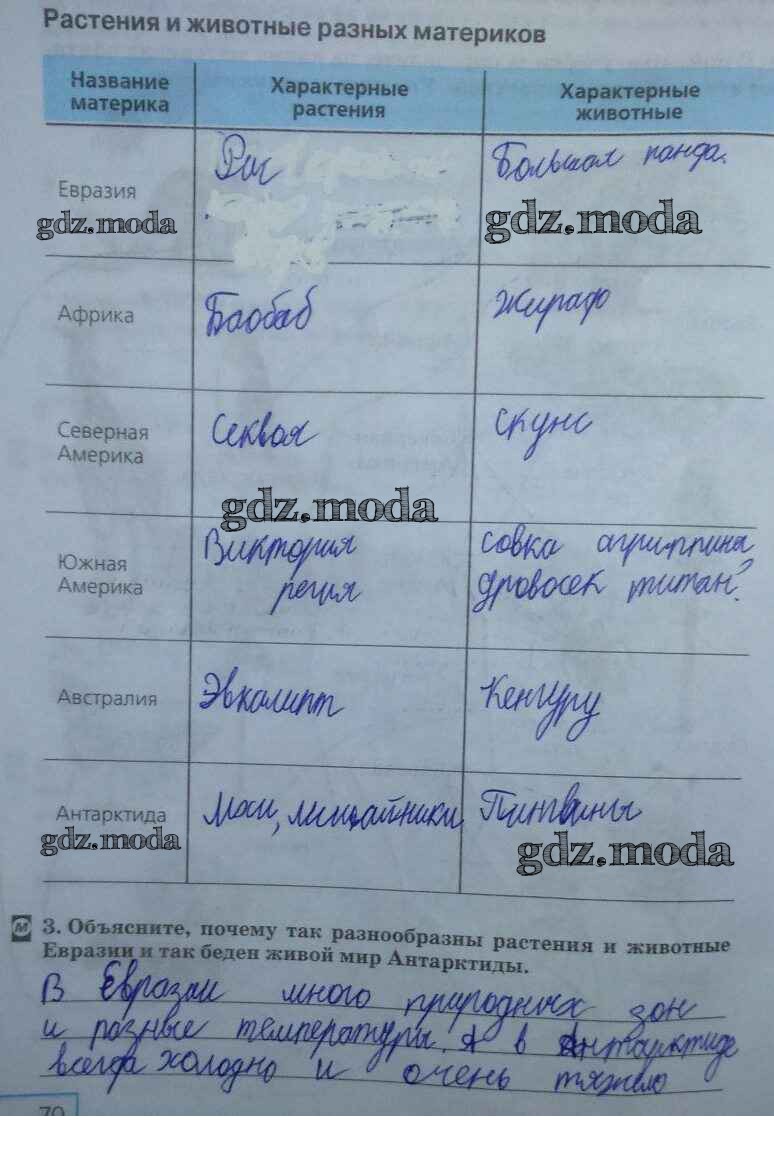 Растения и животные разных материков
Название материка
Характерные растения
Характерные животные
Евразия
Рис
Большая панда.
gdz.moda
gdz.moda
Африка
Баобаб
Жираф
Северная Америка
Секвоя
скунс
gdz.moda
Южная Америка
Виктория
регия
совка агриппина,
дровосек титан.
Австралия
Эвкалипт
Кенгуру
Антарктида
Мхи, лишайники
Пингвины
gdz.moda
gdz.moda
М 3. Объясните, почему так разнообразны растения и животные
Евразии и так беден живой мир Антарктиды.
В Евразии много природных зон
и разные температуры. А в Антарктиде
всегда холодно и очень тяжело
70